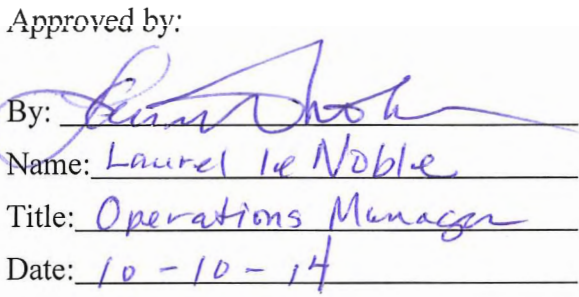 Approved by:
By:
Name: Laurel le Noble
Title: Operations Manager
Date: 10-10-14